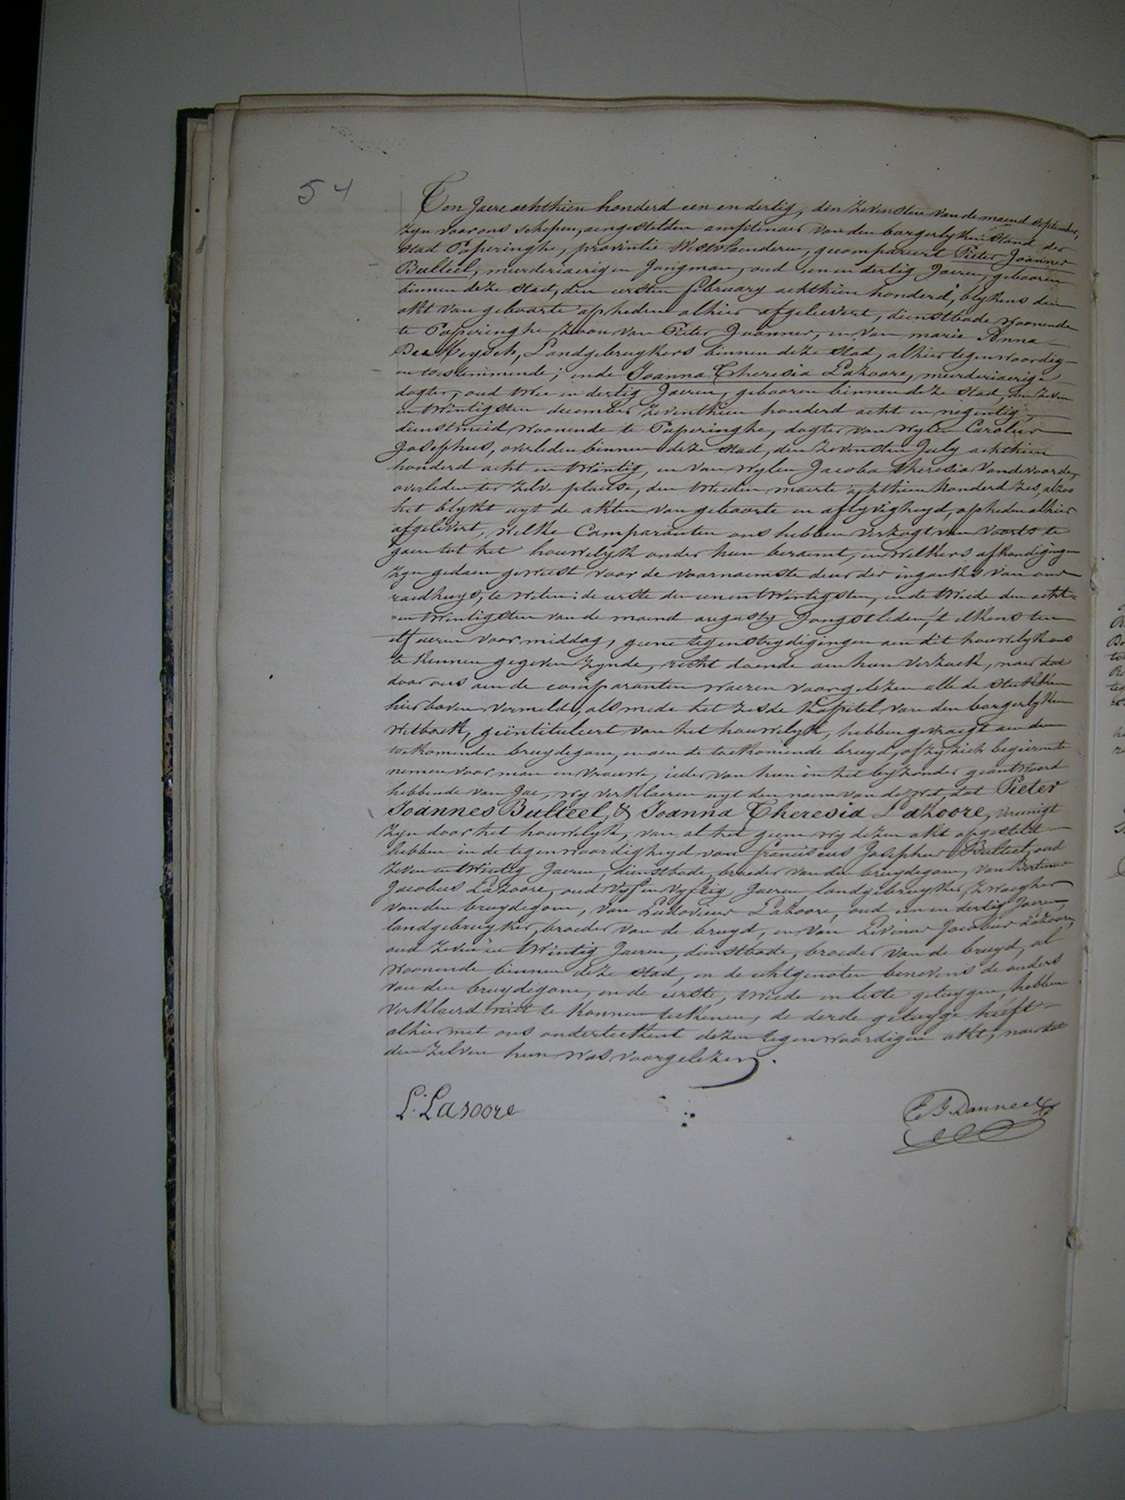 54
Ten Jaere achthien honderd een en dertig, den zevensten van de maend september,
zyn voor ons schepen, aengestelden amptenaer van den borgerlyken stand der
stad Poperinghe, provintie Westvlaenderen, gecompareert Pieter Joannes
Bulteel, meerderjaerigen Jongman, oud een en dertig Jaeren, gebooren
binnen deze stad, den eersten february achthien honderd, blykens den
akt van geboorte op heden alhier afgeleevert, dienstbode woonende
te Poperinghe, zoon van Pieter Joannes, en van marie Anna
Landgebruykers binnen deze stad, alhier tegenwoordig
en toestemmende; ende Joanna Theresia Lazoore, meerderjaerige
dogter, oud twee en dertig Jaeren, gebooren binnen deze stad, den zeven
en twintigsten december zeventhien honderd acht en negentig,
dienstmeid woonende te Poperinghe, dogter van wylen Carolus
Josephus, overleden binnen deze stad, den zevensten July achthien
honderd acht en twintig, en van wylen Jacoba Theresia Vandevoorde,
overleden ter zelve plaetse, den tweeden maerte achthien honderd zes, alzoo
het blykt uyt de akten van geboorte en aflyvigheyd, op heden alhier
afgelevert, welke Comparanten ons hebben verzogt van voorts te
gaen tot het houwelyk onder hun beraemt, en welkers afkondigingen
zyn gedaen geweest voor de voornaemste deur der ingank van ons
raedhuys, te weten: de eerste den een en twintigsten, en de tweede den acht-
en twintigsten van de maend augusty Jongstleden, t'elkens ten
elf ueren voormiddag, geene tegenstrydigingen aen dit houwelyk ons
te kennen gegeven zynde, recht doende aen hun verzoek, naer dat
door ons aen de comparanten waeren voorgelezen alle de stukken
hier boven vermeld, als mede het zesde kapitel van den borgerlyken
wetboek, geïntituleert van het houwelyk, hebben gevraegt aen den
toekomenden bruydegom, en aen de toekomende bruyd, of zy zich begeeren te
nemen voor man en vrouwe, ieder van hun in het byzonder geantwoord
hebbende van Jae, wy verklaeren uyt den naem van de wet, dat Pieter
Joannes Bulteel, & Joanna Theresia Lazoore, vereenigt
zyn door het houwelyk, van al het geene wy dezen akt opgesteld
hebben in de tegenwoordigheyd van franciscus Josephus Bulteel, oud
zeven en twintig Jaeren, dienstbode, broeder van den bruydegom, van
Jacobus Lazoore, oud vyf en vyftig Jaeren landgebruyker, zwaeger
van den bruydegom, van Ludovicus Lazoore, oud een en dertig Jaeren,
landgebruyker, broeder van de bruyd, en van Livinus Jacobus Lazoore,
oud zeven en twintig Jaeren, dienstbode, broeder van de bruyd, al
woonende binnen deze stad, en de echtgenoten benevens de ouders
van den bruydegom, en de eerste, tweede en leste getuygen, hebben
verklaerd niet te konnen teekenen, de derde getuyge heeft
alhier met ons onderteekent dezen tegenwoordigen akt, naer dat
den zelven hun was voorgelezen.
L: Lasoore